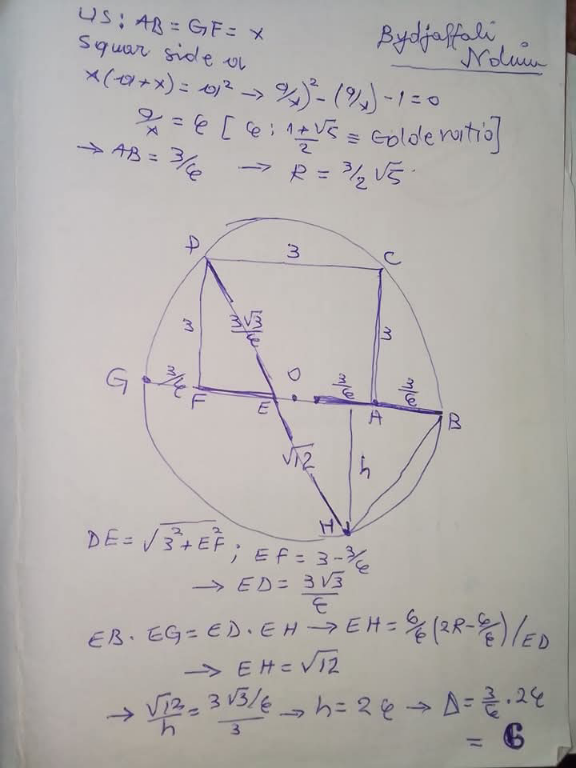 US: AB = GF = x
Bydjaffali
Squar side a
x(a+x) = a² → (a/x)² - (a/x) - 1 = 0
a/x = φ [ φ: (1+√5)/2 ≡ Golde ratio]
→ AB = 3/φ → R = 3/2 √5
D 3 C
3 3√3/φ 3
G 3/φ F E O 3/φ A 3/φ B
√12 h
H
DE = √(3² + EF²) ; EF = 3 - 3/φ
→ ED = 3√3/φ
EB · EG = ED · EH → EH = 6/φ (2R - 6/φ) / ED
→ EH = √12
→ √12/h = (3√3/φ)/3 → h = 2φ → Δ = 3/φ · 2φ
= 6